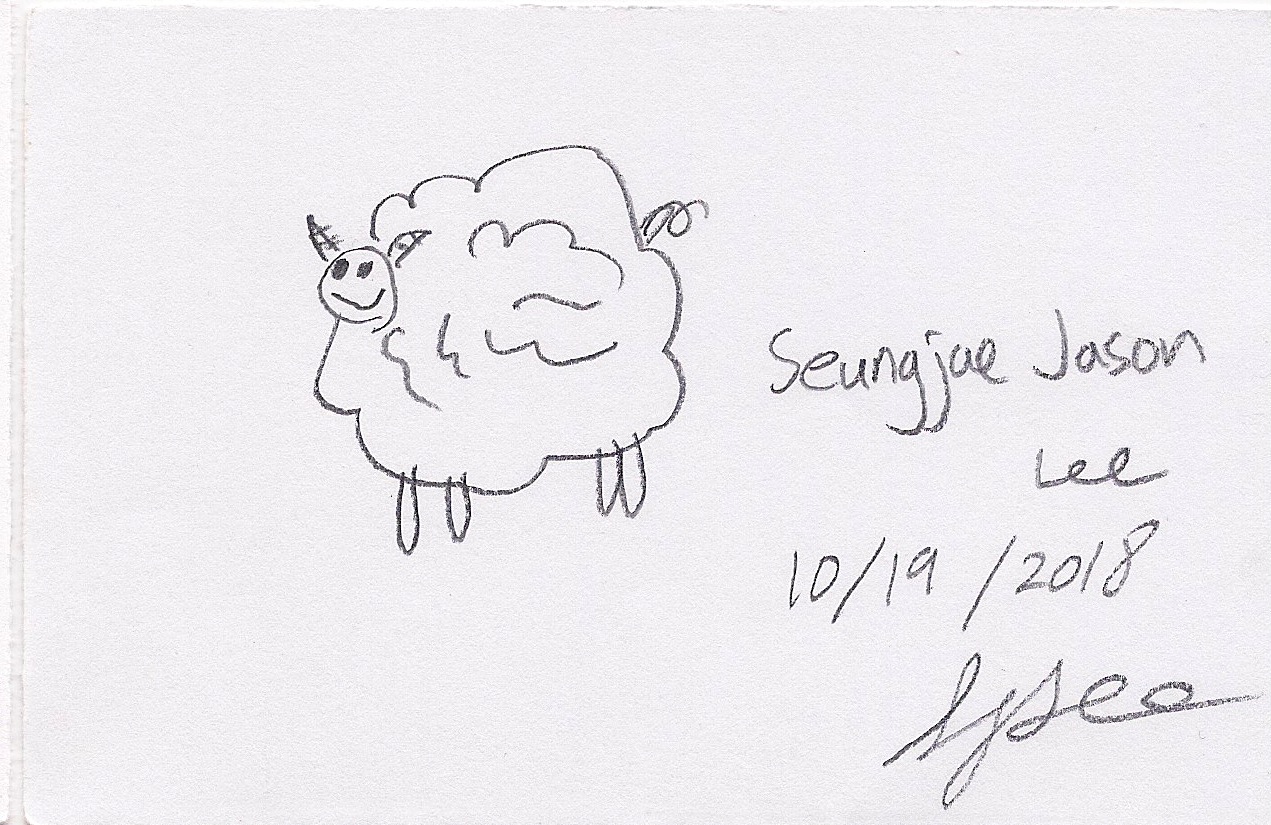 Seungjae Jason
Lee
10/19/2018